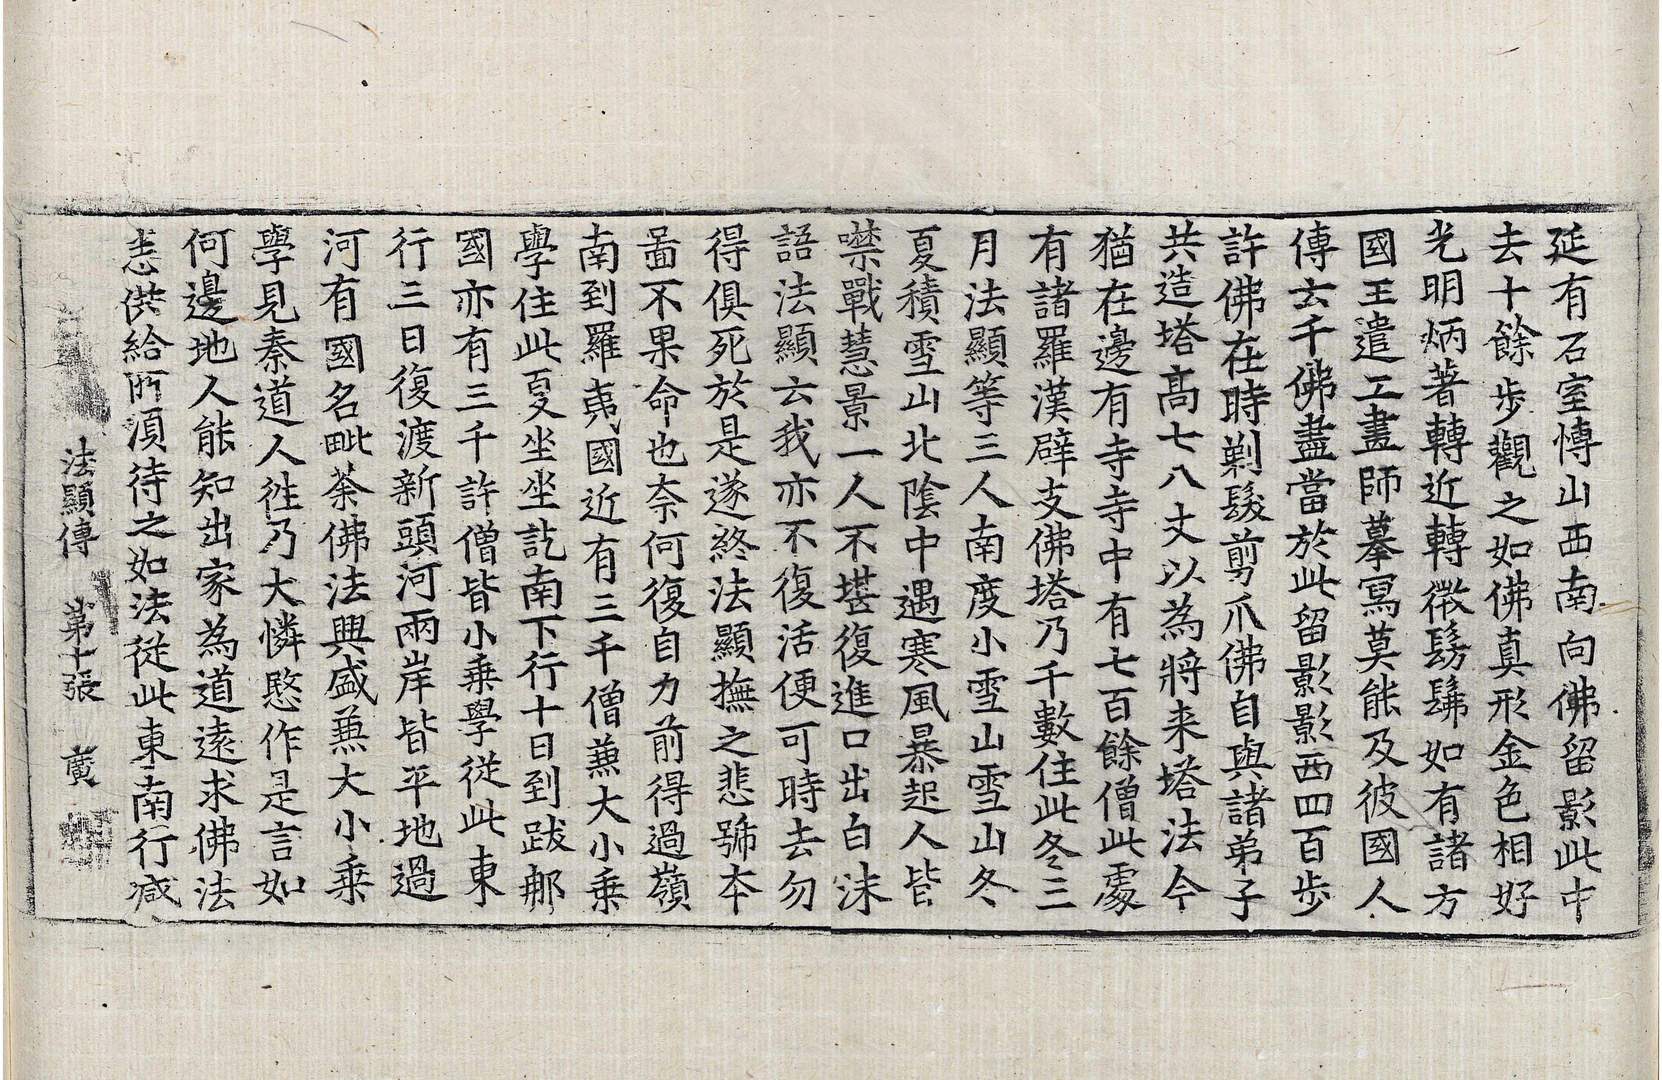 延有石室愽山西南向佛留影此中
去十餘步觀之如佛真形金色相好
光明炳著轉近轉微髣髴如有諸方
國王遣工畫師摹寫莫能及彼國人
傳云千佛盡當於此留影影西四百步
許佛在時剃髮剪爪佛自與諸弟子
共造塔高七八丈以為將来塔法今
猶在邊有寺寺中有七百餘僧此處
有諸羅漢辟支佛塔乃千數住此冬三
月法顯等三人南度小雪山雪山冬
夏積雪山北陰中遇寒風暴起人皆
噤戰慧景一人不堪復進口出白沫
語法顯云我亦不復活便可時去勿
得俱死於是遂終法顯撫之悲號夲
啚不果命也奈何復自力前得過嶺
南到羅夷國近有三千僧蕪大小乗
學住此夏坐坐訖南下行十日到跋那
國亦有三千許僧皆小乗學從此東
行三日復渡新頭河兩岸皆平地過
河有國名毗荼佛法興盛蕪大小乗
學見秦道人徃乃大憐愍作是言如
何邊地人能知出家為道遠求佛法
悉供給所湏待之如法從此東南行减
法顯傳 第十張 廣